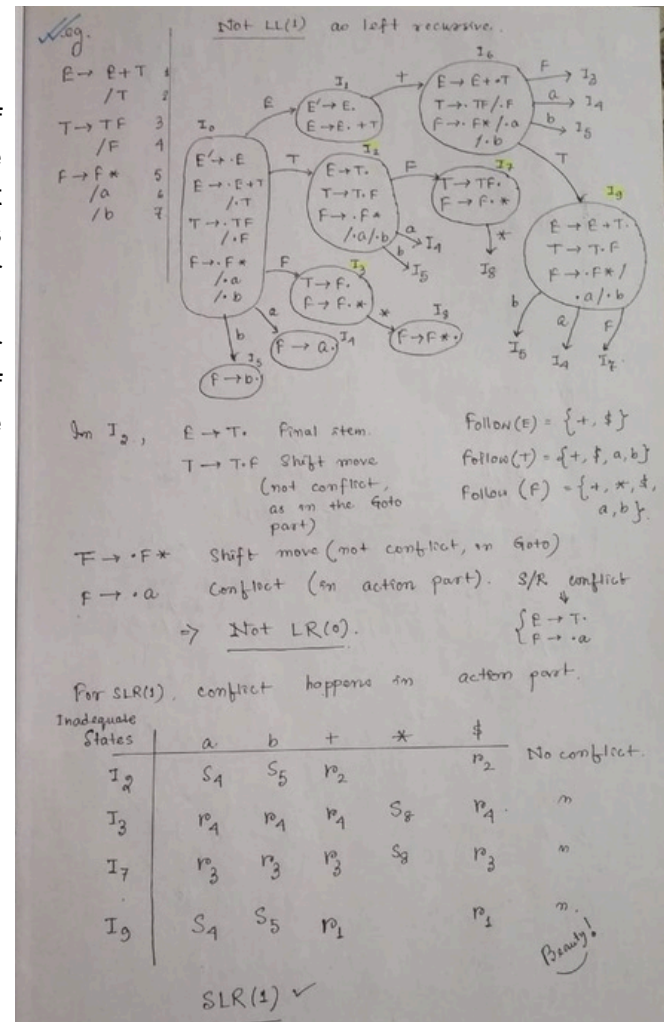 eg.
Not LL(1) as left recursive.
E → E+T 1
/T 2
T → TF 3
/F 4
F → F* 5
/a 6
/b 7
I0
E' → .E
E → .E+T
/.T
T → .TF
/.F
F → .F*
/.a
/.b
E
I1
E' → E.
E → E. +T
+
I6
E → E+.T
T → .TF/.F
F → .F* /.a
/.b
F → I3
a → I4
b → I5
T
T
I2
E → T.
T → T.F
F → .F*
/.a/.b
a I4
b I5
F
I7
T → TF.
F → F.*
*
I8
I9
E → E+T.
T → T.F
F → .F* /
.a/.b
b a F
I5 I4 I7
F
I3
T → F.
F → F.*
*
I8
F → F*.
a
I4
F → a.
b
I5
F → b.
In I2, E → T. Final item.
T → T.F Shift move
(not conflict,
as in the Goto
part)
Follow(E) = {+, $}
Follow(T) = {+, $, a, b}
Follow (F) = {+, *, $,
a, b}.
F → .F* Shift move (not conflict, in Goto)
F → .a Conflict (in action part). S/R conflict
{ E → T.
F → .a
⇒ Not LR(0).
For SLR(1). conflict happens in action part.
Inadequate
States a b + * $
I2 S4 S5 r2 r2 No conflict.
I3 r4 r4 r4 S8 r4. "
I7 r3 r3 r3 S8 r3 "
I9 S4 S5 r1 r1 ".
Beauty!
SLR(1) ✓